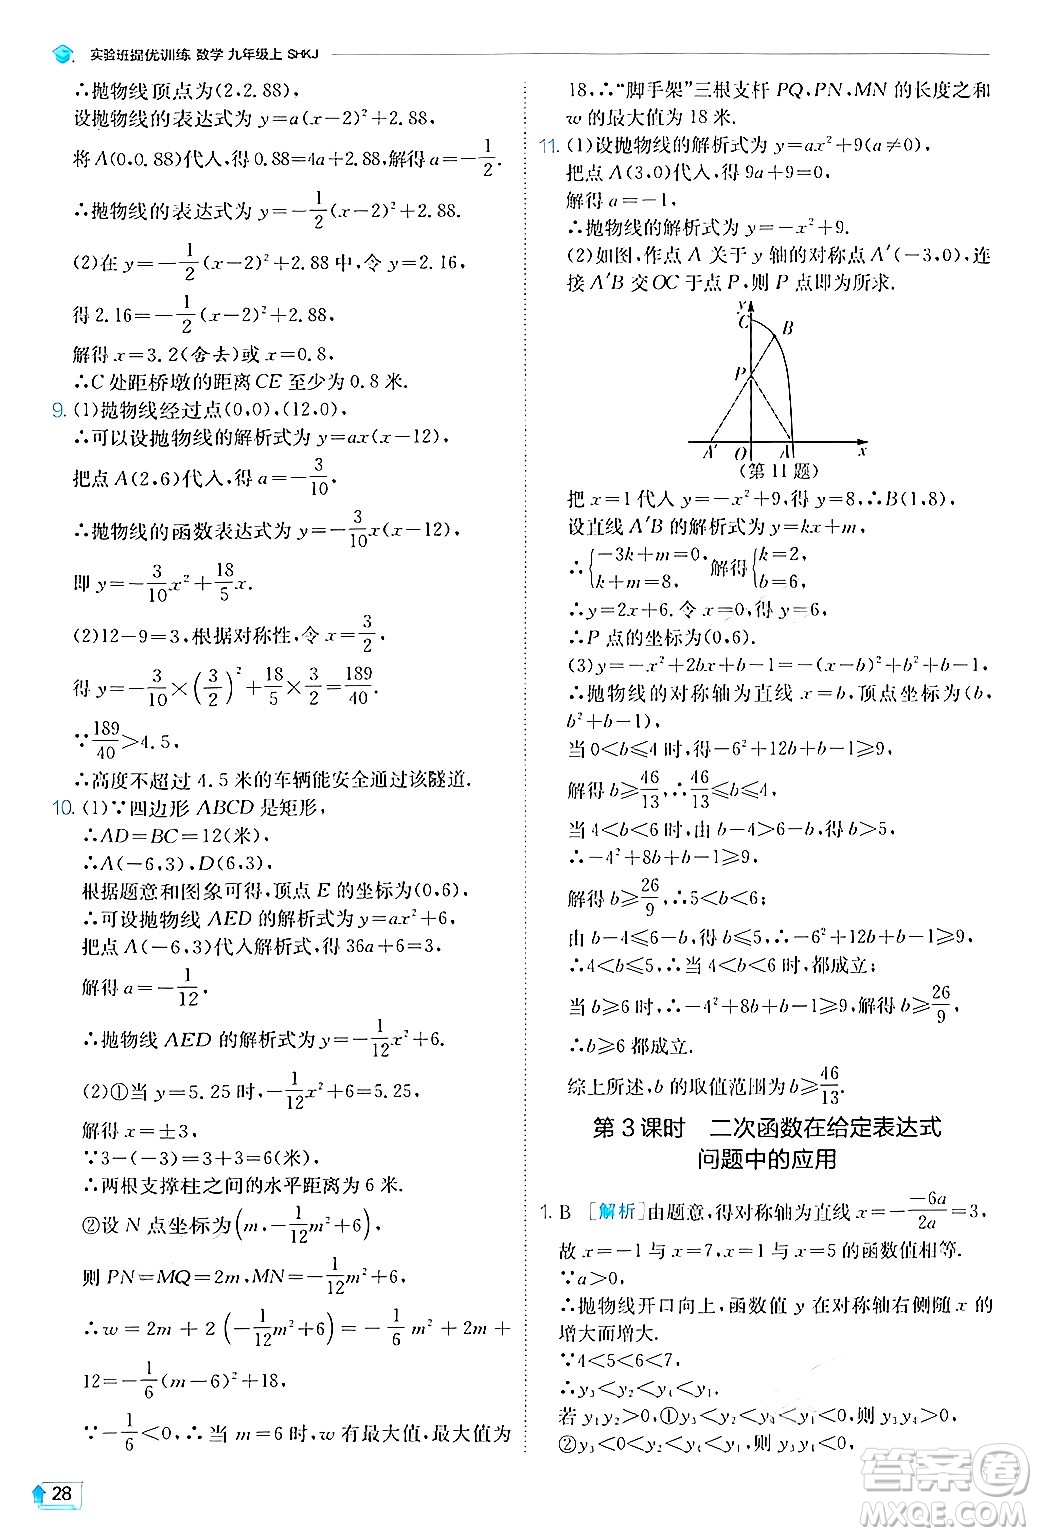 实验班提优训练 数学 九年级上 SHKJ
∴抛物线顶点为(2,2.88),
设抛物线的表达式为 y=a(x-2)²+2.88,
将 A(0,0.88)代入,得 0.88=4a+2.88,解得 a=-1/2.
∴抛物线的表达式为 y=-1/2(x-2)²+2.88.
(2)在 y=-1/2(x-2)²+2.88 中,令 y=2.16,
得 2.16=-1/2(x-2)²+2.88,
解得 x=3.2(舍去)或 x=0.8,
∴C 处距桥墩的距离 CE 至少为 0.8 米.
9. (1)抛物线经过点(0,0),(12,0),
∴可以设抛物线的解析式为 y=ax(x-12),
把点 A(2,6)代入,得 a=-3/10,
∴抛物线的函数表达式为 y=-3/10x(x-12),
即 y=-3/10x²+18/5x.
(2)12-9=3,根据对称性,令 x=3/2,
得 y=-3/10×(3/2)²+18/5×3/2=189/40,
∵189/40>4.5,
∴高度不超过 4.5 米的车辆能安全通过该隧道.
10. (1)∵四边形 ABCD 是矩形,
∴AD=BC=12(米),
∴A(-6,3),D(6,3),
根据题意和图象可得,顶点 E 的坐标为(0,6),
∴可设抛物线 AED 的解析式为 y=ax²+6,
把点 A(-6,3)代入解析式,得 36a+6=3,
解得 a=-1/12,
∴抛物线 AED 的解析式为 y=-1/12x²+6.
(2)①当 y=5.25 时,-1/12x²+6=5.25,
解得 x=±3,
∵3-(-3)=6(米),
∴两根支撑柱之间的水平距离为 6 米.
②设 N 点坐标为(m,-1/12m²+6),
则 PN=MQ=2m,MN=-1/12m²+6,
∴w=2m+2(-1/12m²+6)=-1/6m²+2m+
12=-1/6(m-6)²+18,
∵-1/6<0,∴当 m=6 时,w 有最大值,最大值为
18,∴“脚手架”三根支杆 PQ,PN,MN 的长度之和
w 的最大值为 18 米.
11. (1)设抛物线的解析式为 y=ax²+9(a≠0),
把点 A(3,0)代入,得 9a+9=0,
解得 a=-1,
∴抛物线的解析式为 y=-x²+9.
(2)如图,作点 A 关于 y 轴的对称点 A′(-3,0),连
接 A′B 交 OC 于点 P,则 P 点即为所求.
y
C
B
P
A′ O A x
(第 11 题)
把 x=1 代入 y=-x²+9,得 y=8,∴B(1,8),
设直线 A′B 的解析式为 y=kx+m,
∴{-3k+m=0, k+m=8, 解得{k=2, b=6,
∴y=2x+6.令 x=0,得 y=6,
∴P 点的坐标为(0,6).
(3)y=-x²+2bx+b-1=-(x-b)²+b²+b-1,
∴抛物线的对称轴为直线 x=b,顶点坐标为(b,
b²+b-1),
当 0<b≤4 时,-6²+12b+b-1≥9,
解得 b≥46/13,∴46/13≤b≤4;
当 4<b<6 时,由 b-4>6-b,得 b>5,
∴-4²+8b+b-1≥9,
解得 b≥26/9,∴5<b<6;
由 b-4≤6-b,得 b≤5,∴-6²+12b+b-1≥9,
∴4<b≤5,∴当 4<b<6 时,都成立;
当 b≥6 时,∴-4²+8b+b-1≥9,解得 b≥26/9,
∴b≥6 都成立.
综上所述,b 的取值范围为 b≥46/13.
第 3 课时 二次函数在给定表达式
问题中的应用
1. B [解析]由题意,得对称轴为直线 x=-(-6a)/2a=3,
故 x=-1 与 x=7,x=1 与 x=5 的函数值相等.
∵a>0,
∴抛物线开口向上,函数值 y 在对称轴右侧随 x 的
增大而增大.
∵4<5<6<7,
∴y₃<y₂<y₄<y₁,
若 y₁y₂>0,①y₃<y₂<y₄<y₁<0;
②y₃<0<y₂<y₄<y₁,则 y₃y₄<0,
28
答案圈
MXQE.COM